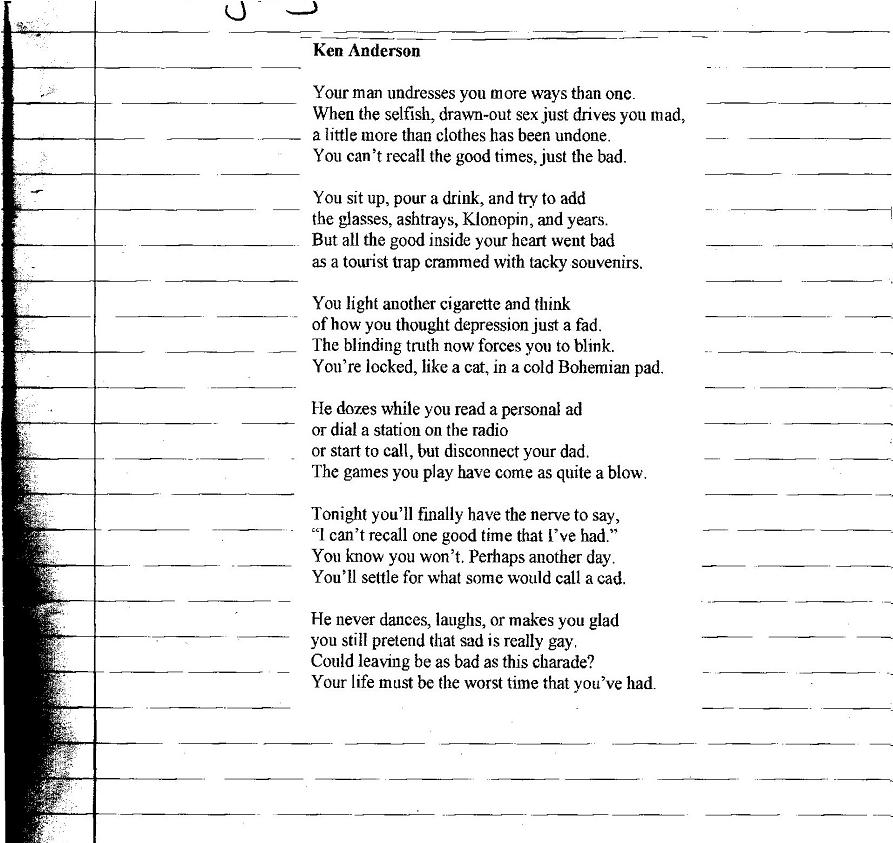 Ken Anderson
Your man undresses you more ways than one.
When the selfish, drawn-out sex just drives you mad,
a little more than clothes has been undone.
You can't recall the good times, just the bad.
You sit up, pour a drink, and try to add
the glasses, ashtrays, Klonopin, and years.
But all the good inside your heart went bad
as a tourist trap crammed with tacky souvenirs.
You light another cigarette and think
of how you thought depression just a fad.
The blinding truth now forces you to blink.
You're locked, like a cat, in a cold Bohemian pad.
He dozes while you read a personal ad
or dial a station on the radio
or start to call, but disconnect your dad.
The games you play have come as quite a blow.
Tonight you'll finally have the nerve to say,
“I can't recall one good time that I've had.”
You know you won't. Perhaps another day.
You'll settle for what some would call a cad.
He never dances, laughs, or makes you glad
you still pretend that sad is really gay.
Could leaving be as bad as this charade?
Your life must be the worst time that you've had.